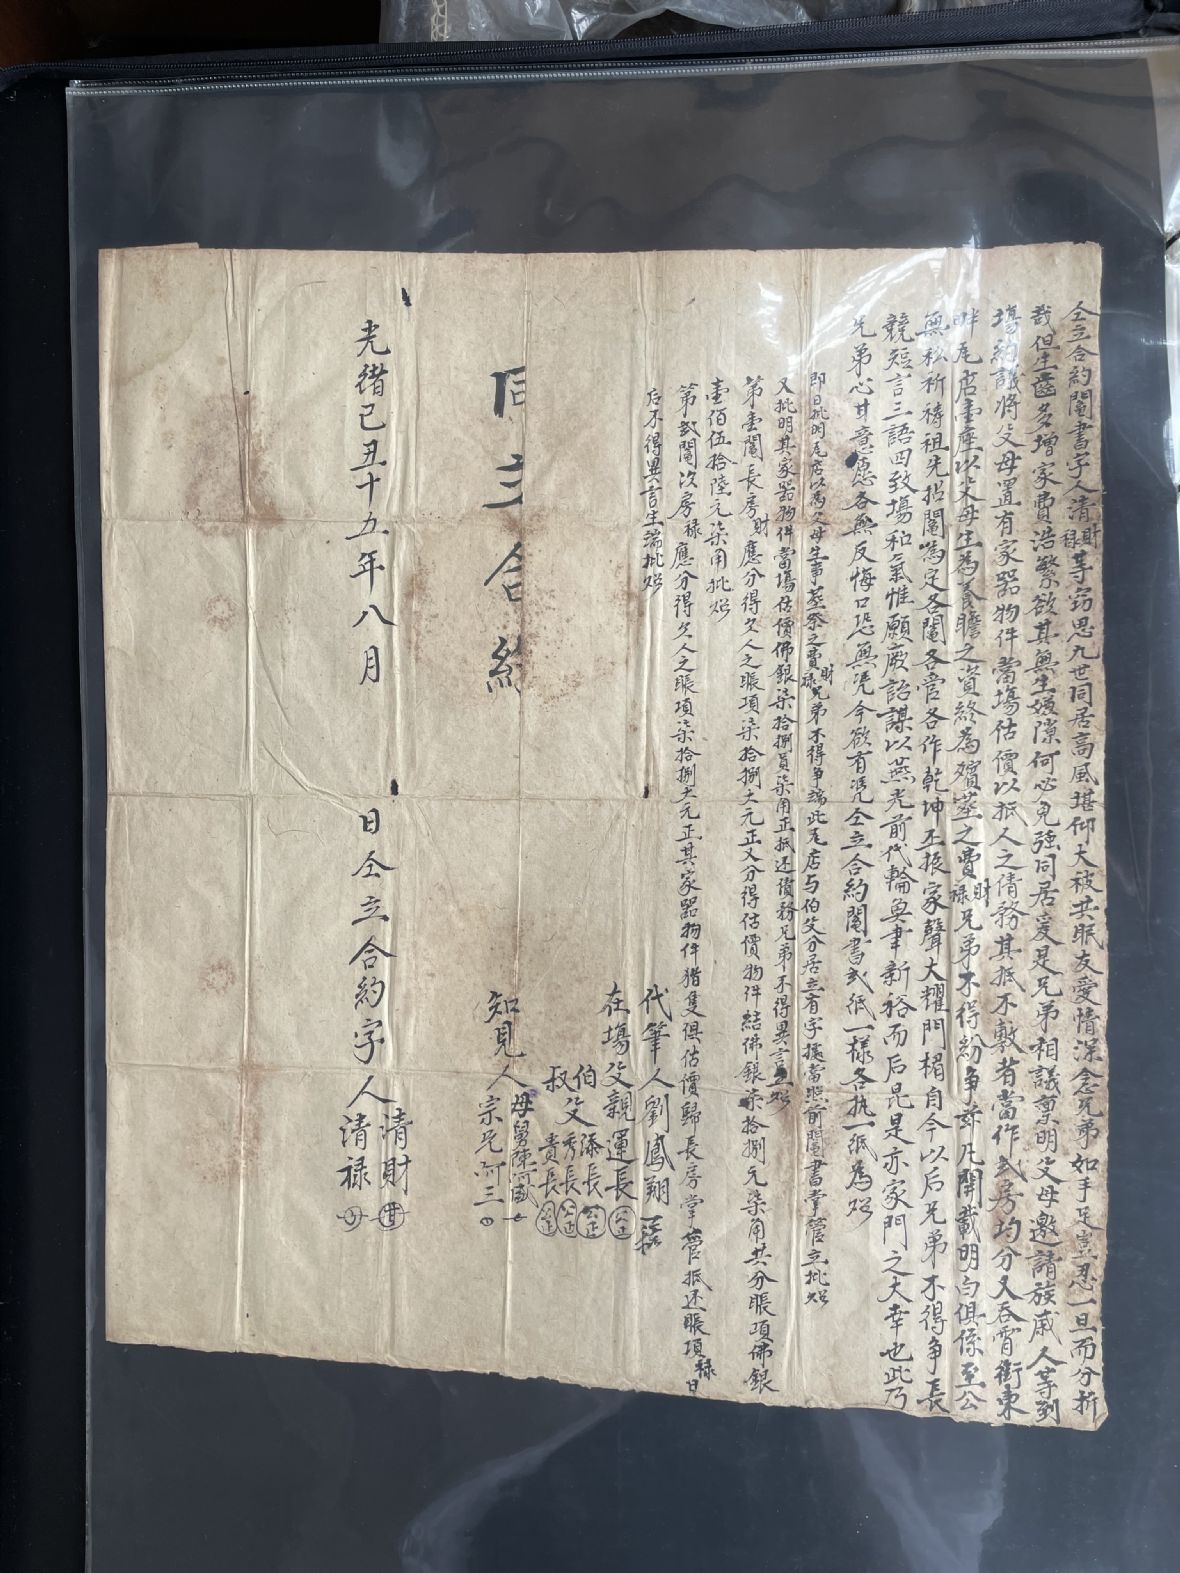 仝立合約鬮書字人清財祿等竊思九世同居高風堪仰大被共眠友愛情深念兄弟如手足豈忍一旦而分折
哉但生齒多增家費浩繁欲其無生嫌隙何必免強同居爰是兄弟相議稟明父母邀請族戚人等到
塲約議將父母置有家器物件當塲估價以抵人之債務其抵不敷者當作弍房均分又吞霄街東
畔瓦店壹座以父母生為養贍之資終為殯塟之費財祿兄弟不得紛爭並凡開載明白俱係至公
無私祈禱祖先拈鬮為定各鬮各管各作乾坤丕振家聲大耀門楣自今以后兄弟不得爭長
競短言三語四致塲和氣惟願厥詒謀以燕光前代輪奐聿新裕而后昆是亦家門之大幸也此乃
兄弟心甘意愿各無反悔口恐無凭今欲有凭仝立合約鬮書弍紙一樣各执一紙為炤
即日批明瓦店以為父母生事塟祭之費財祿兄弟不得爭端此瓦店与伯父分居立有字據當照前鬮書掌管立批炤
又批明其家器物件當塲估價佛銀柒拾捌員柒角正抵还債務兄弟不得異言立炤
第壹鬮長房財應分得欠人之賬項柒拾捌大元正又分得估價物件結佛銀柒拾捌元柒角共分賬項佛銀
壹佰伍拾陸元柒角批炤
第弍鬮次房祿應分得欠人之賬項柒拾捌大元正其家器物件猪隻俱估價歸長房掌管抵还賬項祿日
后不得異言生端批炤
代筆人劉鳳翔
在塲父親運長 公正
伯父添長 公正
秀長 公正
叔貴長 公正
母舅陳阿
知見人宗兄阿三
同立合約
光緒己丑十五年八月 日仝立合約字人清財
清祿